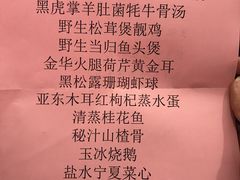 黑虎掌羊肚菌牦牛骨汤
野生松茸煲靓鸡
野生当归鱼头煲
金华火腿荷芹黄金耳
黑松露珊瑚虾球
亚东木耳红枸杞蒸水蛋
清蒸桂花鱼
秘汁山楂骨
玉冰烧鹅
盐水宁夏菜心